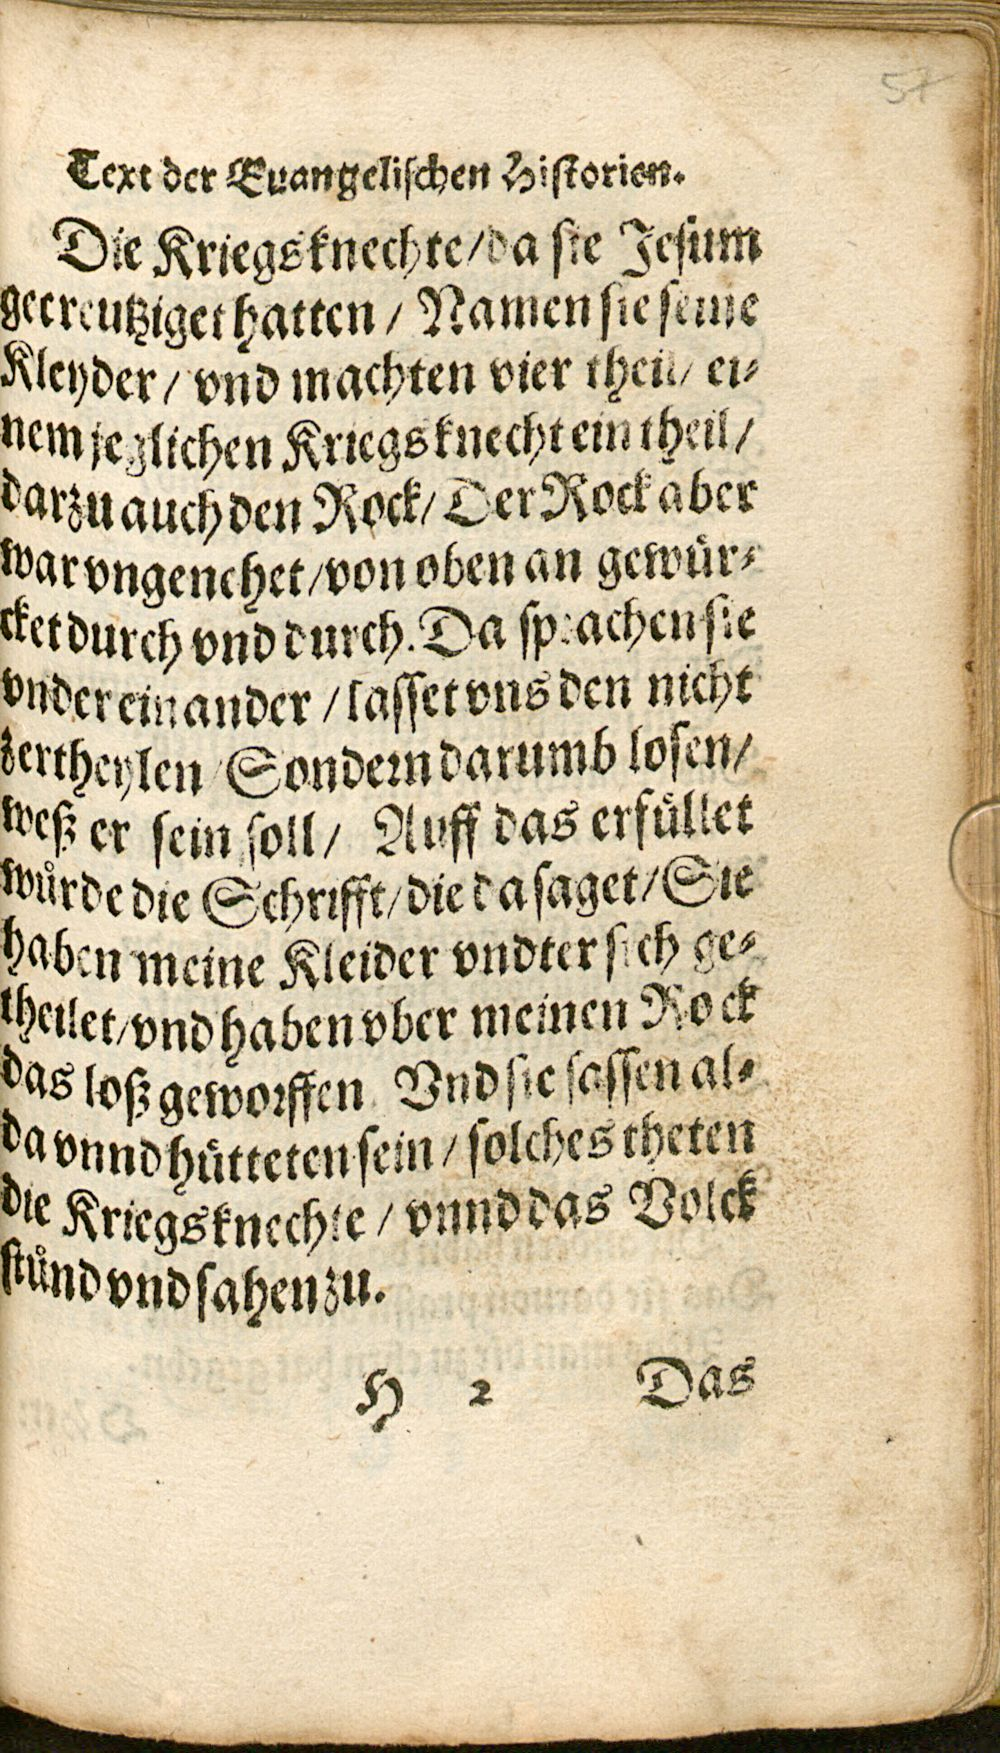 57
Text der Euangelischen Historien.
Die Kriegsknechte/da sie Jesum
gecreutziget hatten / Namen sie seine
Kleyder / vnd machten vier theil/ ei⸗
nem jezlichen Kriegsknecht ein theil/
darzu auch den Rock/ Der Rock aber
war vngenehet/von oben an gewür⸗
cket durch vnd durch. Da sprachen sie
vnder einander / lasset vns den nicht
zertheylen Sondern darumb losen/
weß er sein soll/ Auff das erfüllet
würde die Schrifft/die da saget/Sie
haben meine Kleider vndter sich ge⸗
theilet/vnd haben vber meinen Rock
das loß geworffen Vnd sie sassen al⸗
da vnnd hütteten sein / solches theten
die Kriegsknechte / vnnd das Volck
stůnd vnd sahen zu.
H 2 Das